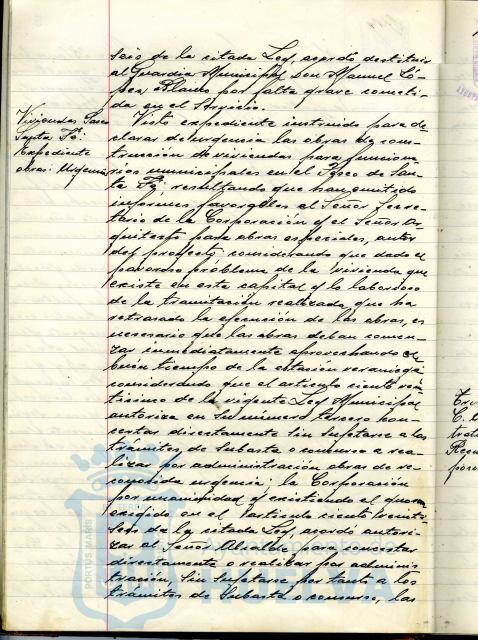 seis de la citada Ley, acordó destituir
al Guardia Municipal Don Manuel Ló-
pez Blanco por falta grave cometi-
da en el servicio.
Viviendas Paseo
Santa Fé.
Expediente
obras Urgencia
Visto expediente instruido para de-
clarar de urgencia las obras de cons-
trucción de viviendas para funciona-
rios municipales en el Paseo de San-
ta Fé; resultando que han emitido
informes favorables el Señor Secre-
tario de la Corporación y el Señor Ar-
quitecto para obras especiales, autor
del proyecto; considerando que dado el
pavoroso problema de la vivienda que
existe en esta capital y lo laborioso
de la tramitación realizada, que ha
retrasado la ejecución de las obras, es
necesario que las obras deban comen-
zar inmediatamente aprovechando el
buen tiempo de la estación veraniega;
considerando que el artículo ciento vein-
ticinco de la vigente Ley Municipal
autoriza en su número tercero con-
certar directamente sin sujetarse a los
trámites de subasta o concurso o rea-
lizar por administración obras de re-
conocida urgencia; la Corporación
por unanimidad y existiendo el quorum
exigido en el artículo ciento veinti-
seis de la citada Ley, acordó autori-
zar al Señor Alcalde para concertar
directamente o realizar por adminis-
tración, sin sujetarse por tanto a los
trámites de subasta o concurso, las
PORTUS MARIS